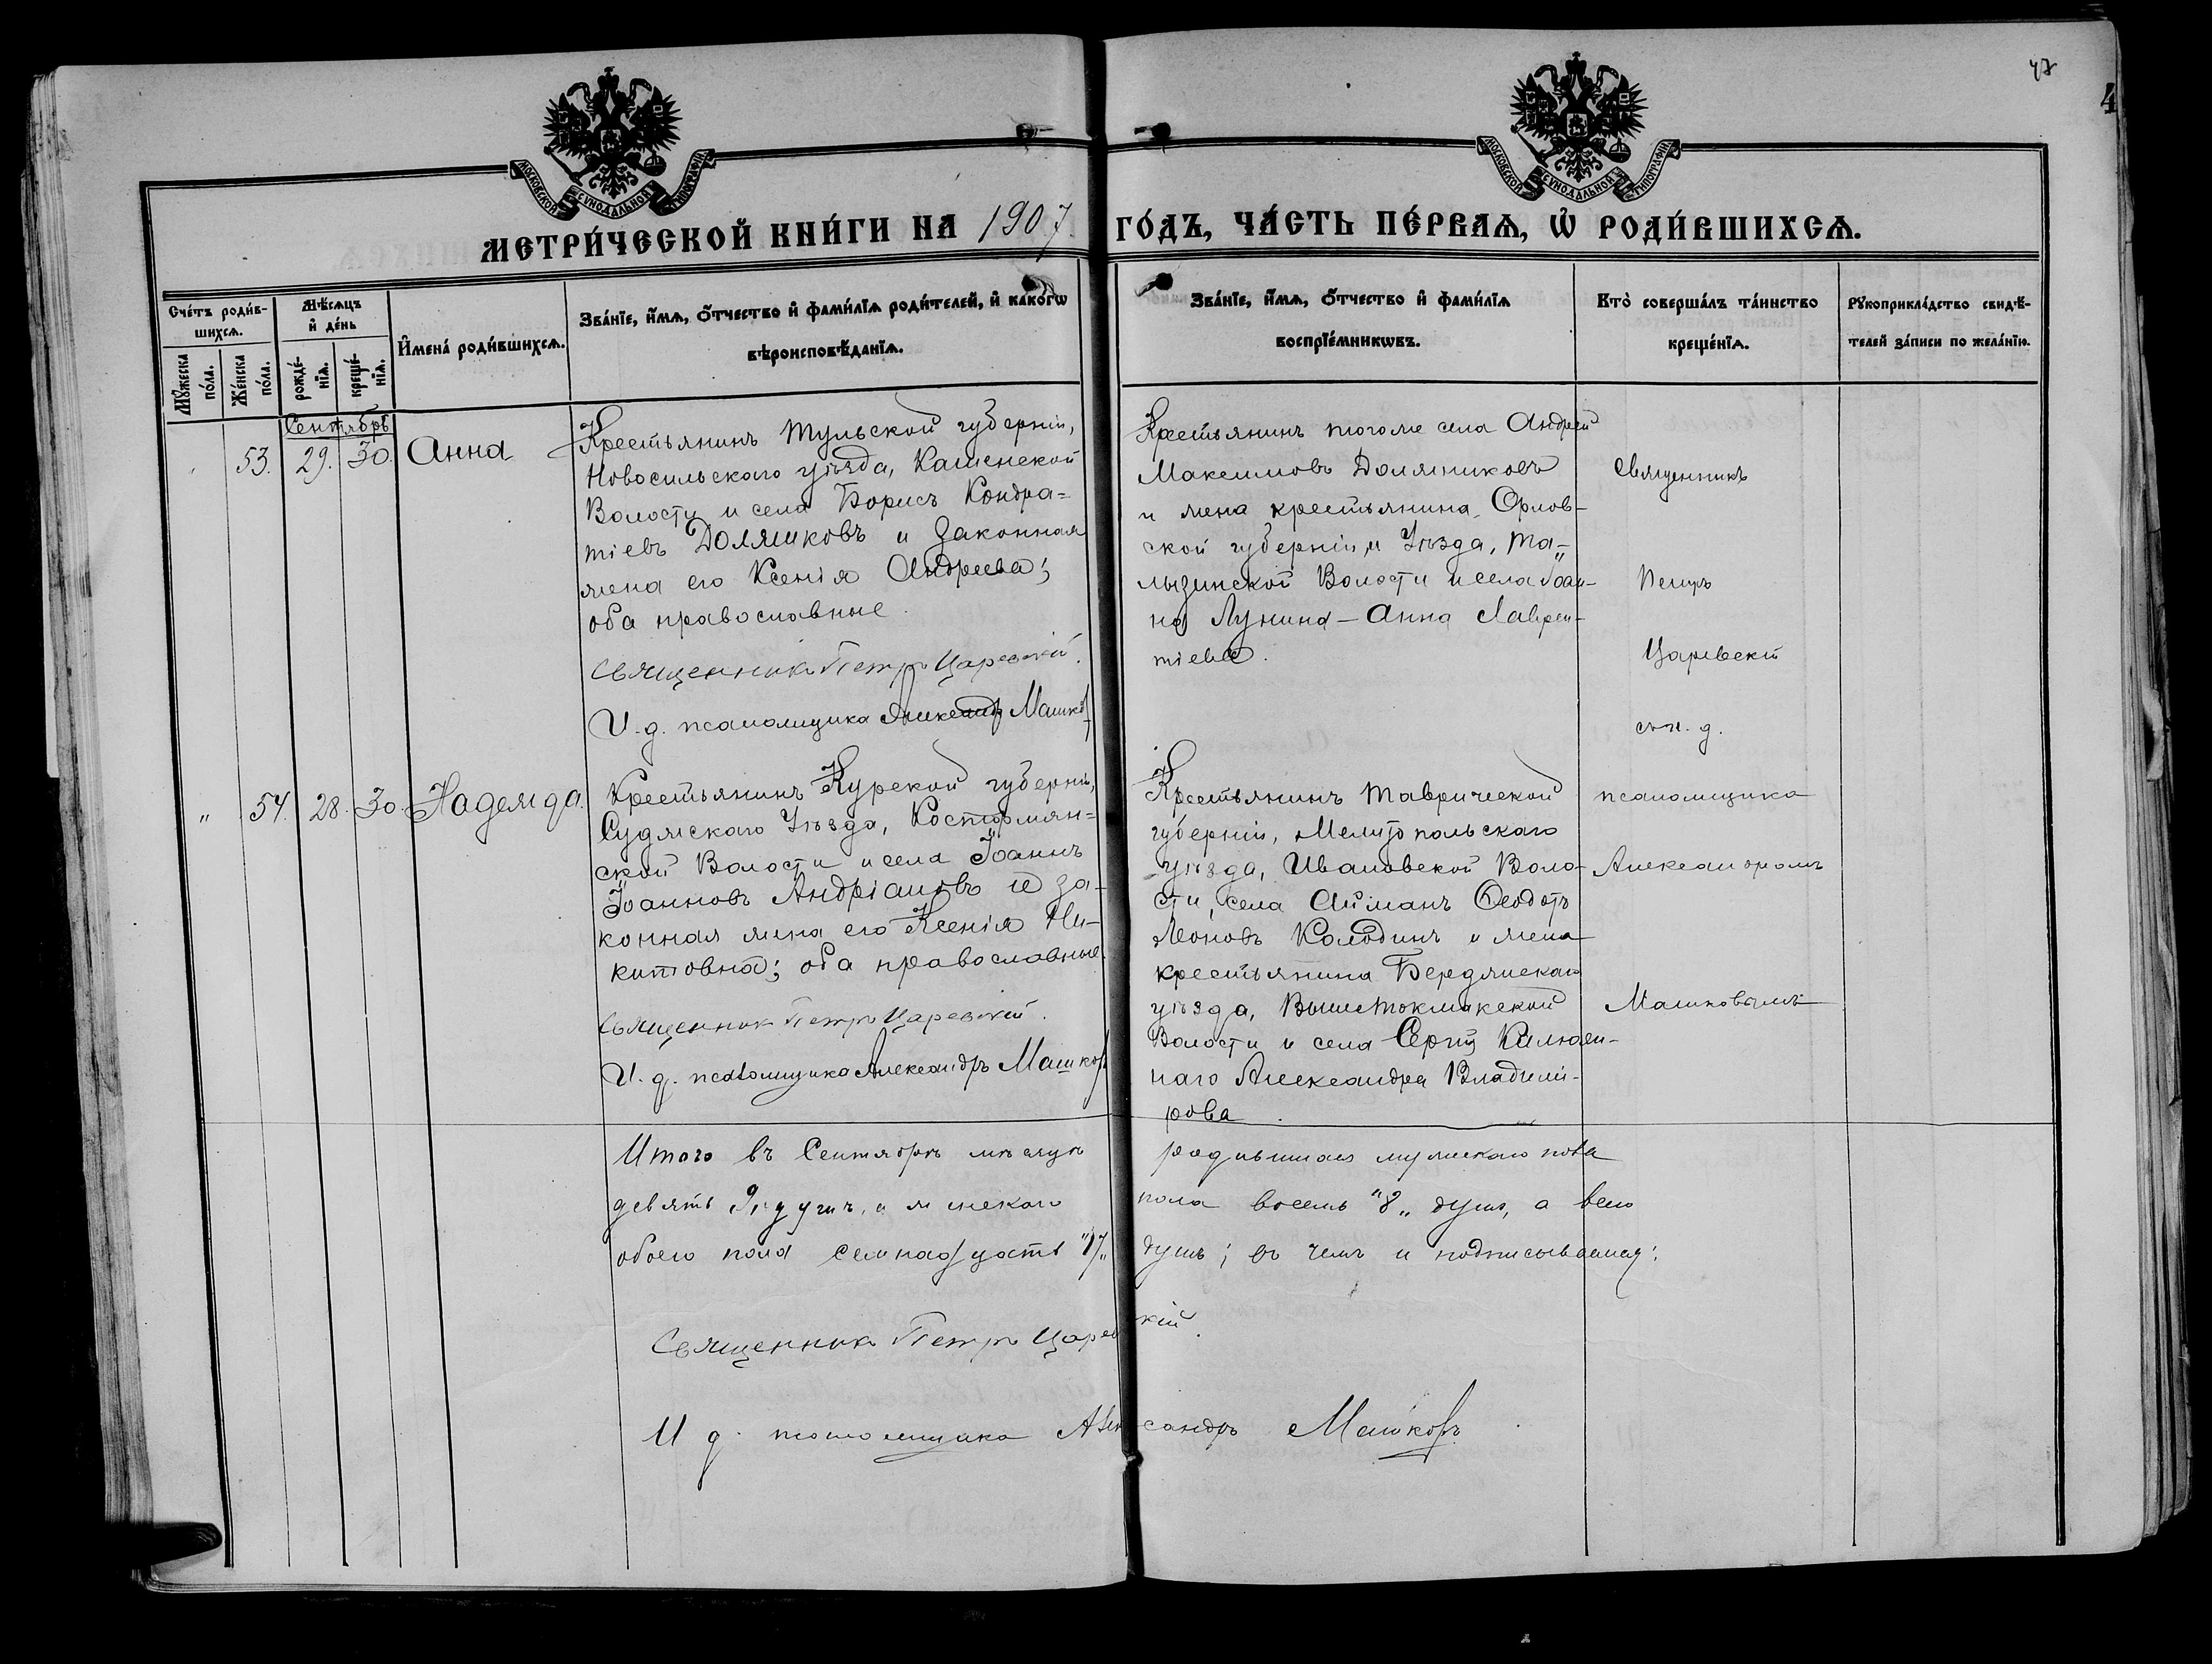 47
МОСКОВСКОЙ СѴНОДАЛЬНОЙ ТИПОГРАФІИ
МОСКОВСКОЙ СѴНОДАЛЬНОЙ ТИПОГРАФІИ
МЕТРИ́ЧЕСКОЙ КНИ́ГИ НА 1907 ГО́ДЪ, ЧА́СТЬ ПЕ́РВАѦ, Ѡ҆ РОДИ́ВШИХСѦ.
Сче́тъ роди́в-
шихсѧ.
Мꙋ́жеска по́ла.
Же́нска по́ла.
Мѣ́сѧцъ и҆ де́нь
рожде́-нїѧ.
креще́-нїѧ.
И҆мена̀ роди́вшихсѧ.
Зва́нїе, и҆́мѧ, ѻ҆́тчество и҆ фами́лїѧ роди́телей, и҆ како́гѡ
вѣроисповѣ́данїѧ.
Зва́нїе, и҆́мѧ, ѻ҆́тчество и҆ фами́лїѧ
воспрїе́мникѡвъ.
Кто̀ соверша́лъ та́инство
креще́нїѧ.
Рꙋкоприкла́дство свидѣ́-
телей за́писи по жела́нїю.
Сентябрь
53. 29. 30. Анна
Крестьянинъ Тульской губерніи,
Новосильского уѣзда, Каменской
Волости и села Борисъ Кондра=
тіевъ Должиковъ и законная
жена его Ксенія Андреева;
оба православные.
Священникъ Петръ Царевскій.
И. д. псаломщика Александръ Машковъ
Крестьянинъ того же села Андрей
Максимовъ Должниковъ
и жена крестьянина Орлов-
ской губерніи и Уѣзда, Та-
лызинской Волости и села Іоан-
на Лунина - Анна Лаврен-
тіева.
Священникъ
Петръ
Царевскій
съ и. д.
псаломщика
Александромъ
Машковымъ
" 54. 28. 30. Надежда.
Крестьянинъ Курской губерніи,
Суджскаго Уѣзда, Костормян=
ской Волости и села Іоаннъ
Іоанновъ Андріановъ и за-
конная жена его Ксенія Ни-
китовна; оба православные.
Священникъ Петръ Царевскій.
И. д. псаломщика Александръ Машковъ
Крестьянинъ Таврической
губерніи, Мелитопольскаго
уѣзда, Ивановской Воло-
сти, села Айманъ Ѳеодотъ
Леоновъ Колодинъ и жена
крестьянина Бердянскаго
уѣзда, Вышетокмакской
Волости и села Сергія Калюж-
наго Александра Владими-
рова
Итого въ Сентябрѣ мѣсяцѣ родившихся мужскаго пола
девять 9 душъ, а женскаго пола восемь "8" душъ, а всего
обоего пола семнадцать "17" душъ; въ чемъ и подписываемся:
Священникъ Петръ Царевскій.
И д. псаломщика Александръ Машковъ.